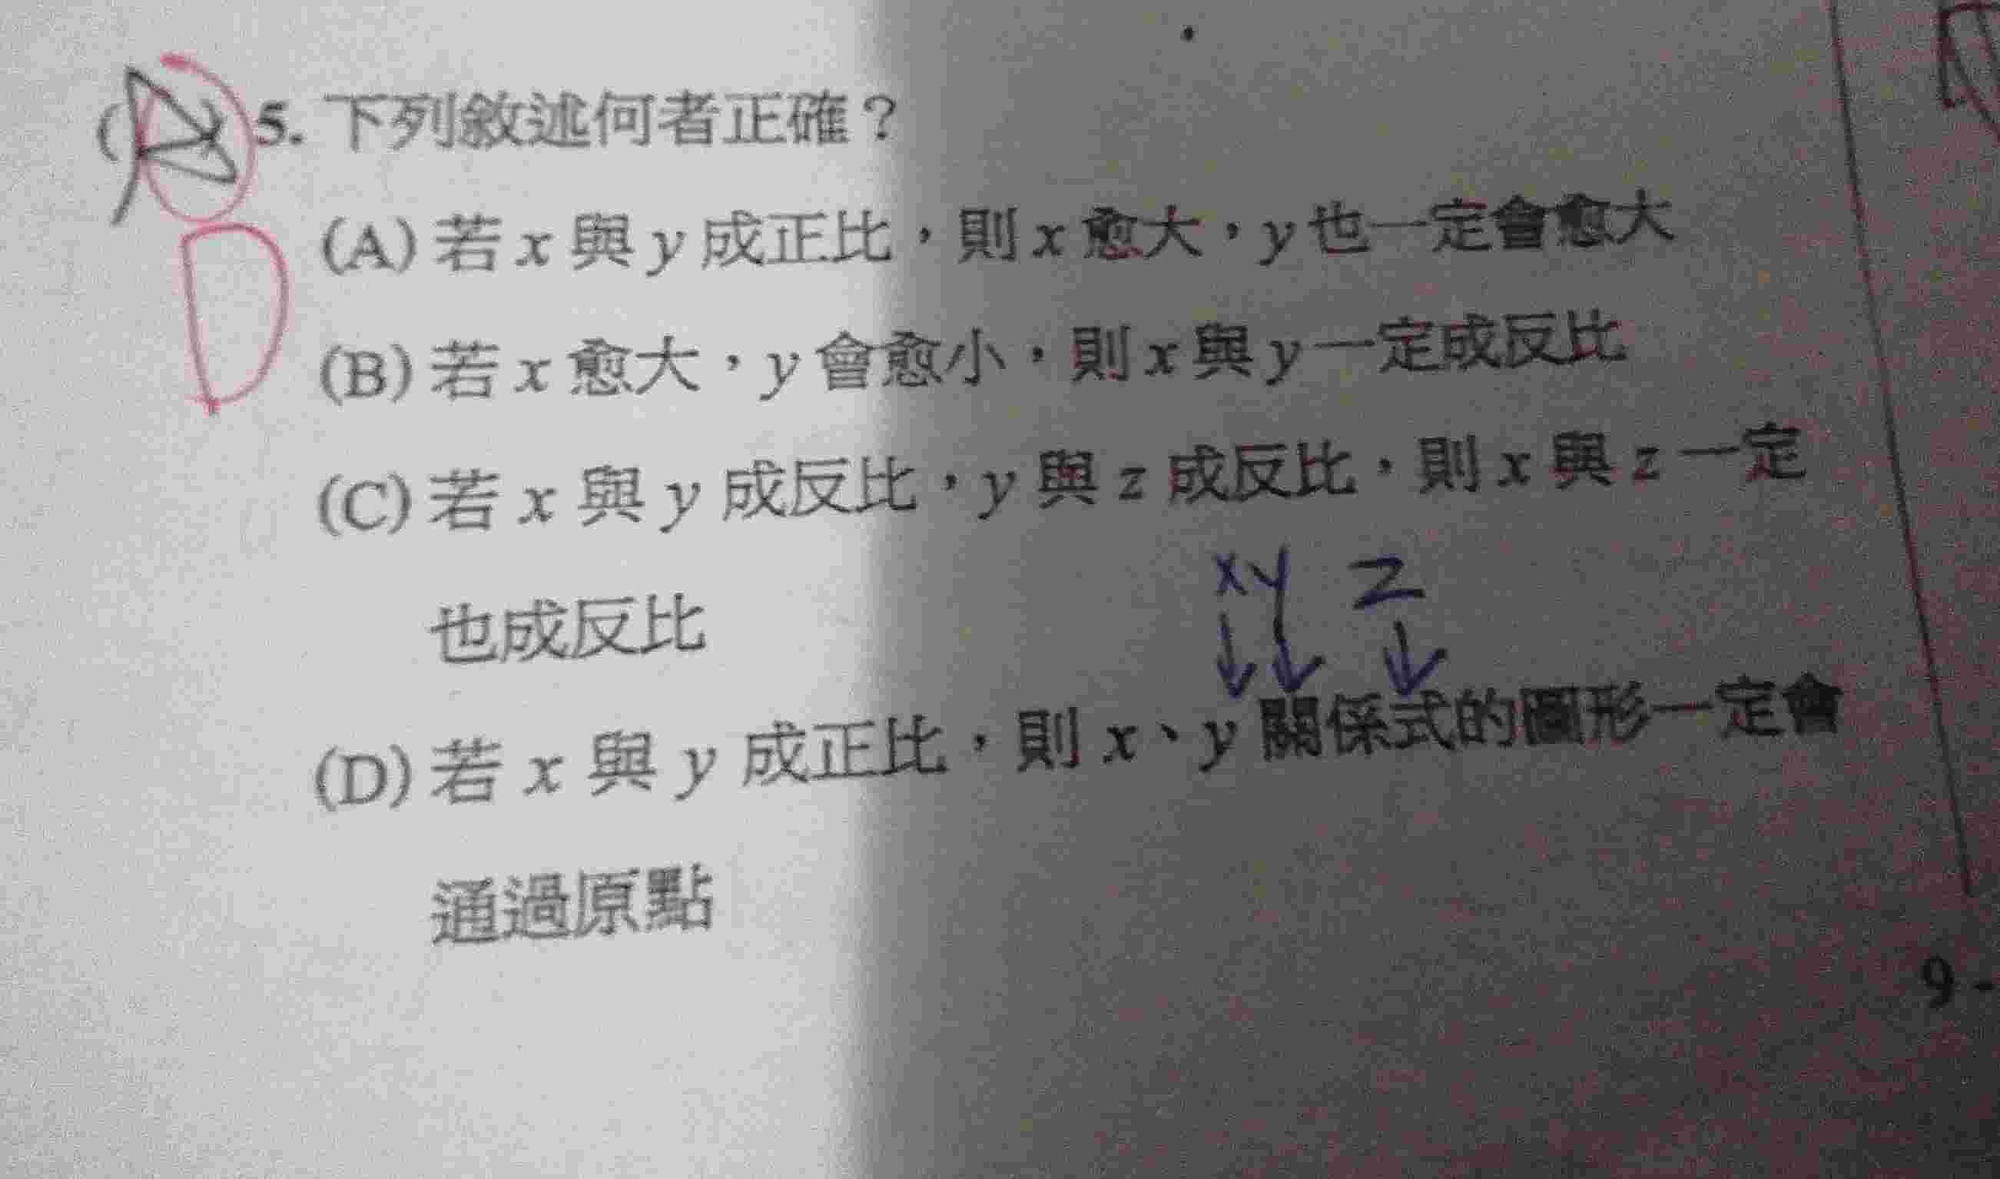 5. 下列敘述何者正確？
D
(A) 若 x 與 y 成正比，則 x 愈大，y 也一定會愈大
(B) 若 x 愈大，y 會愈小，則 x 與 y 一定成反比
(C) 若 x 與 y 成反比，y 與 z 成反比，則 x 與 z 一定
也成反比
xy z
(D) 若 x 與 y 成正比，則 x、y 關係式的圖形一定會
通過原點
9-